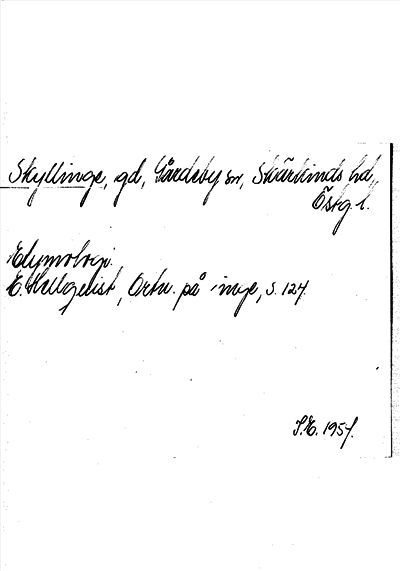 Skyllinge, gd, Gårdeby sn, Skärkinds hd,
Östg.l.
Etymologi.
E. Hellquist, Ortn. på -inge, s. 124.
S.E. 1957.